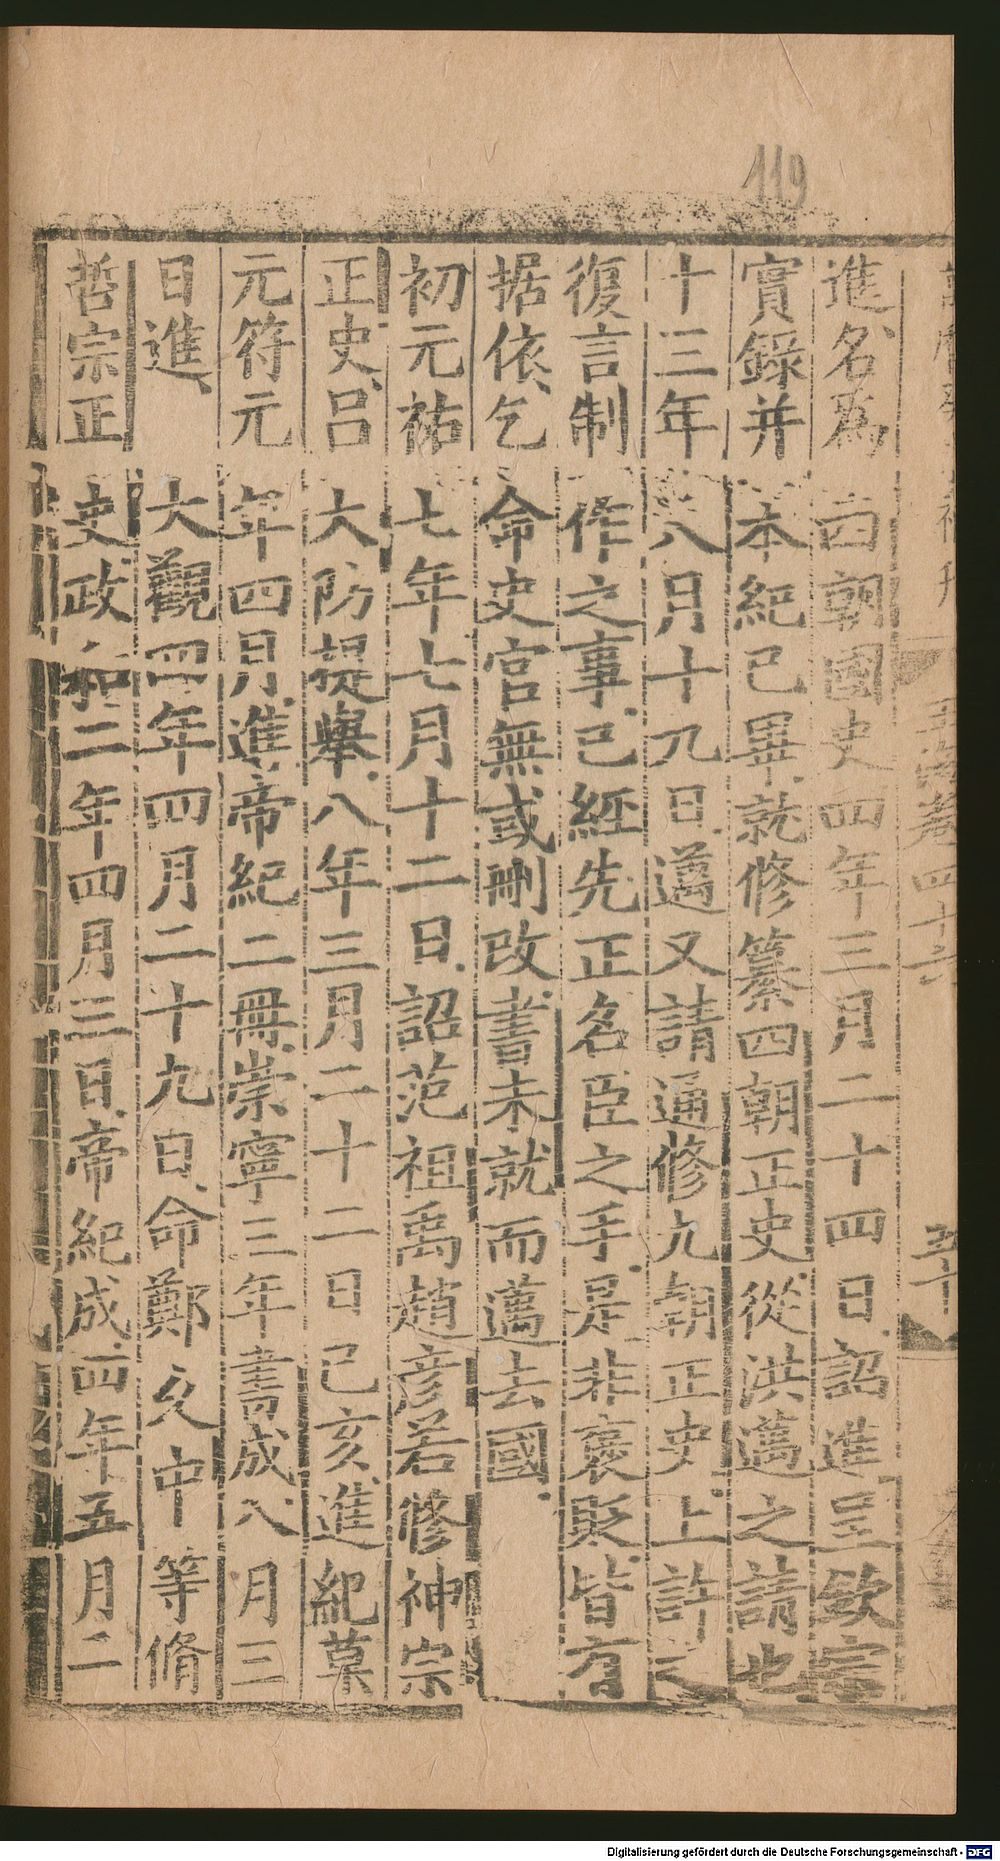 119
進名為四朝國史四年三月二十四日詔進呈欽宗
實錄并本紀已畢就修纂四朝正史從洪邁之請也
十三年八月十九日邁又請通修九朝正史上許之
復言制作之事已經先正名臣之手是非褒貶皆有
据依乞命史官無或刪改書未就而邁去國
初元祐七年七月十二日詔范祖禹趙彥若修神宗
正史吕大防提舉八年三月二十二日己亥進紀草
元符元年四月進帝紀二冊崇寧三年書成八月三
日進大觀四年四月二十九日命鄭久中等脩
哲宗正史政和二年四月三日帝紀成四年五月二
玉海卷四十六
五十
Digitalisierung gefördert durch die Deutsche Forschungsgemeinschaft - DFG